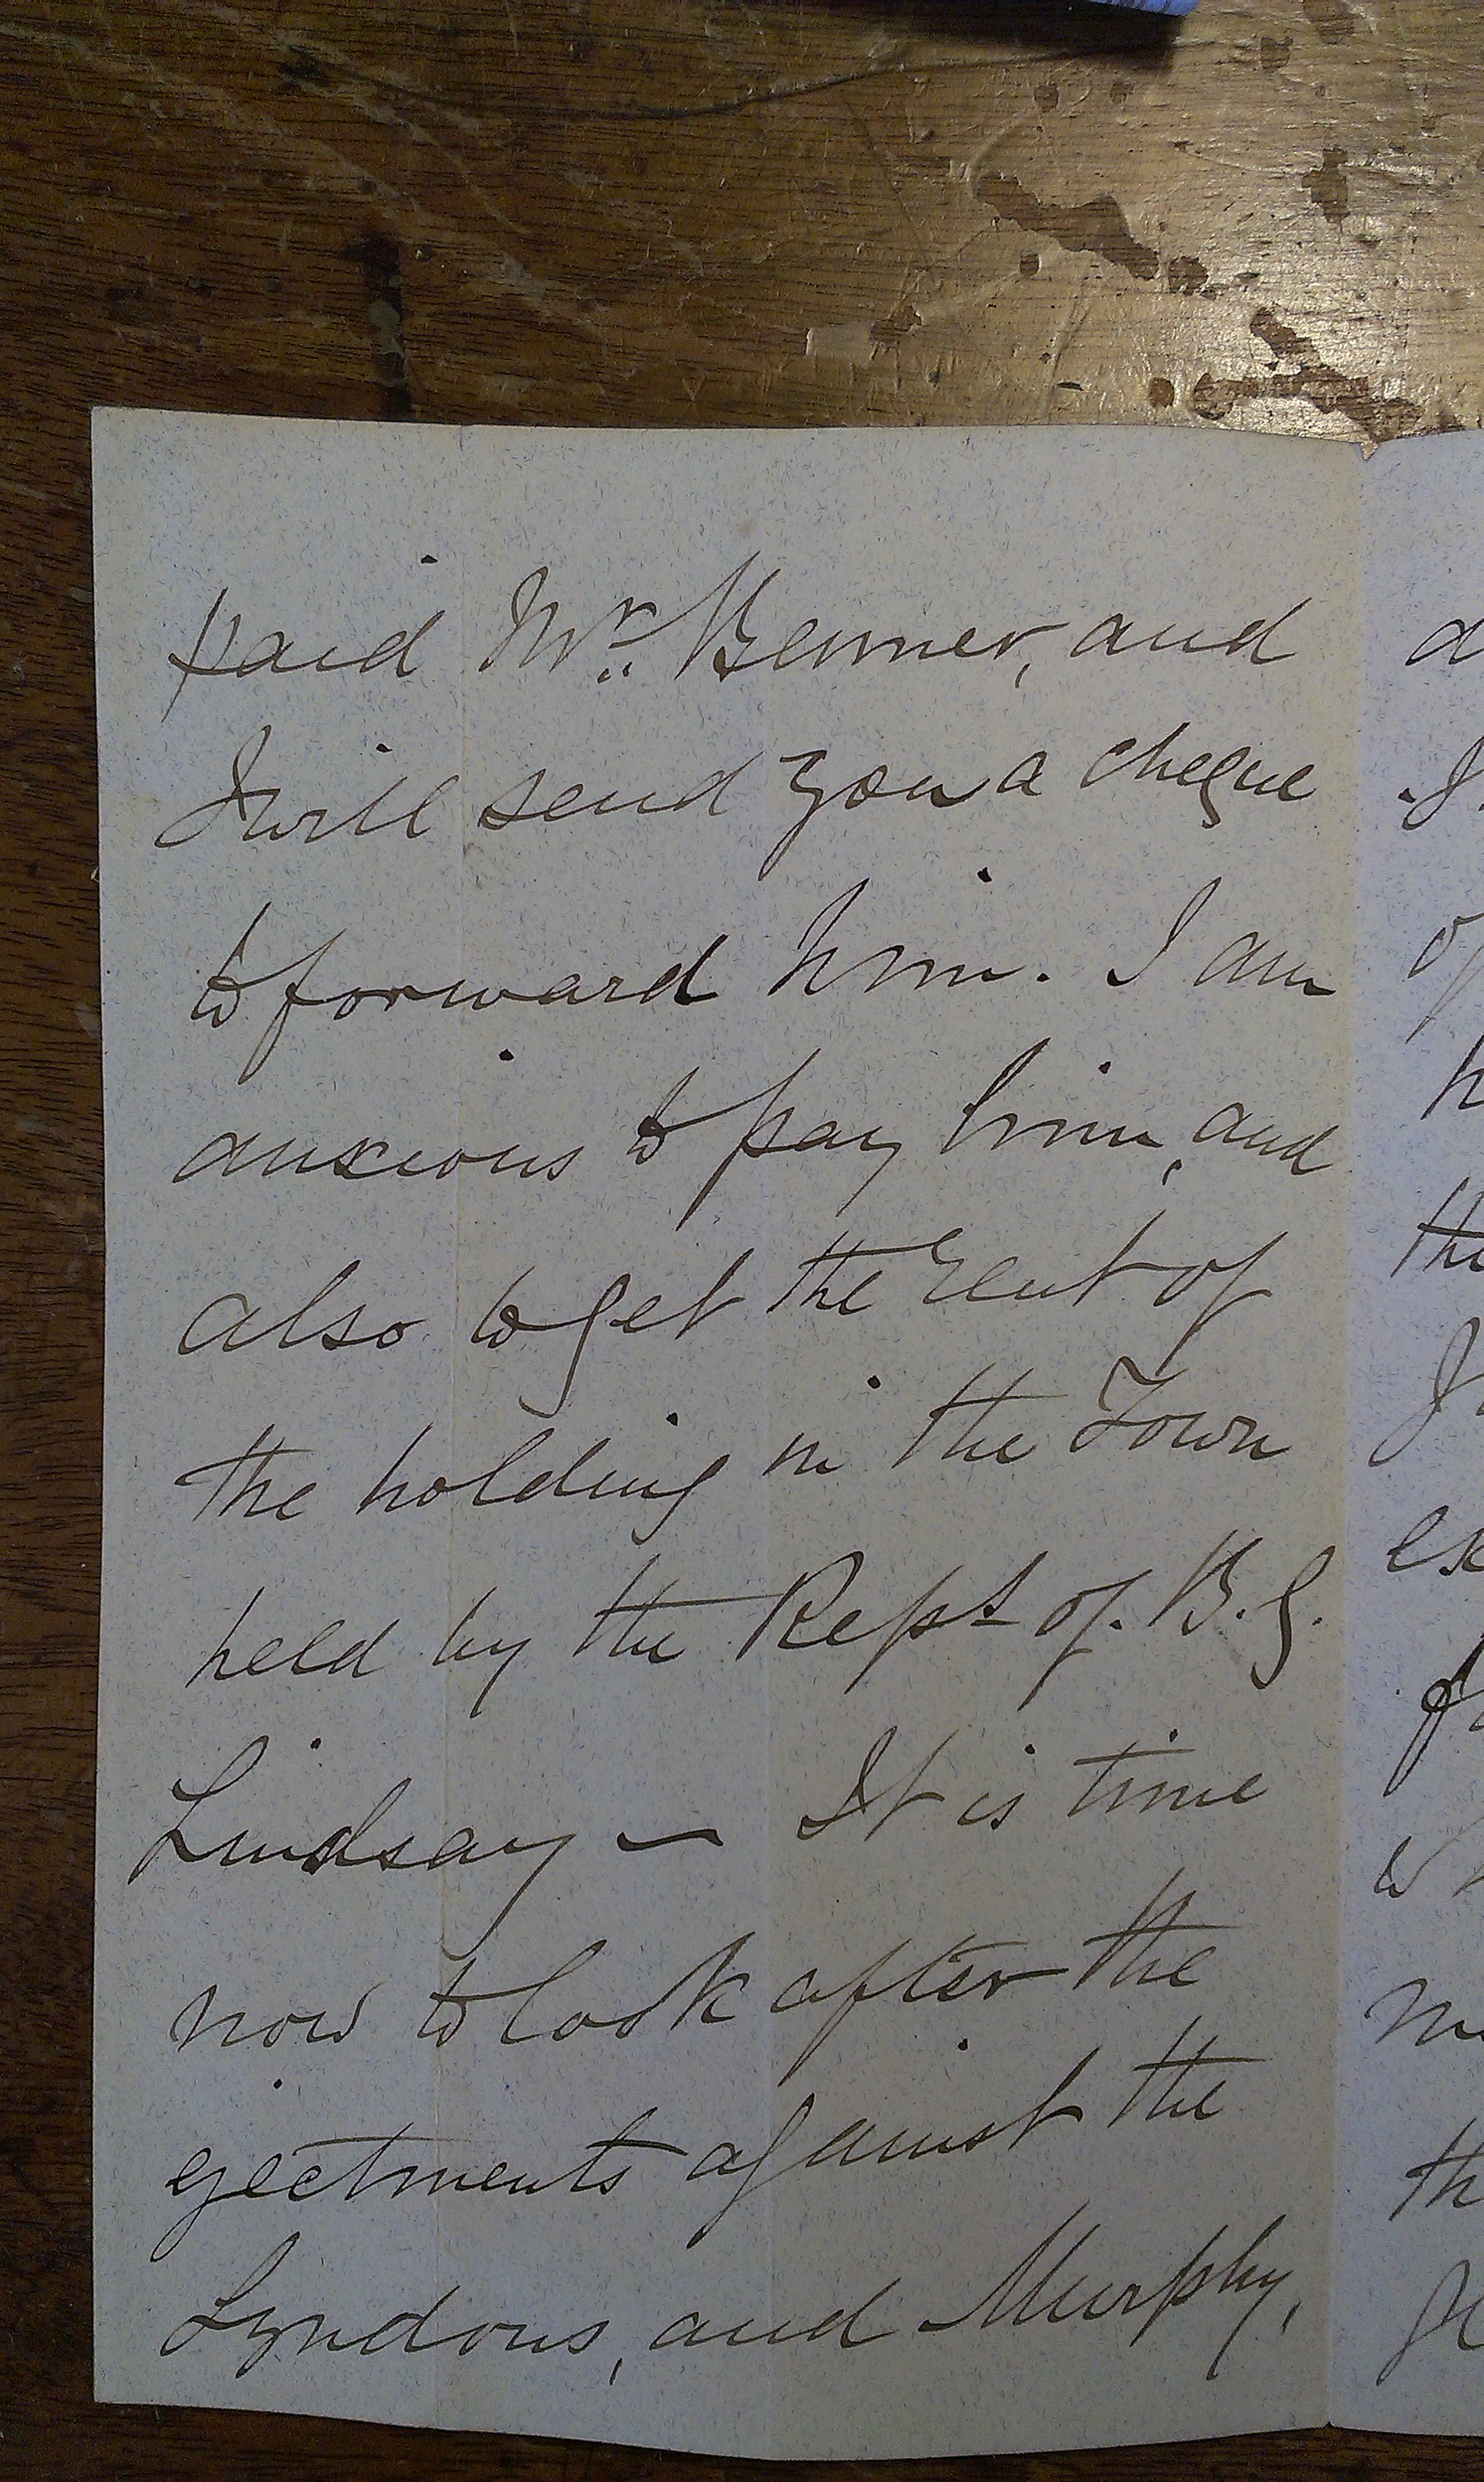 paid Mr. Benner, and
I will send you a cheque
to forward him. I am
anxious to pay him, and
also to get the rent of
the holding in the Town
held by the Rept of. B. G.
Lindsay — It is time
now to look after the
ejectments against the
Lyndons, and Murphy,